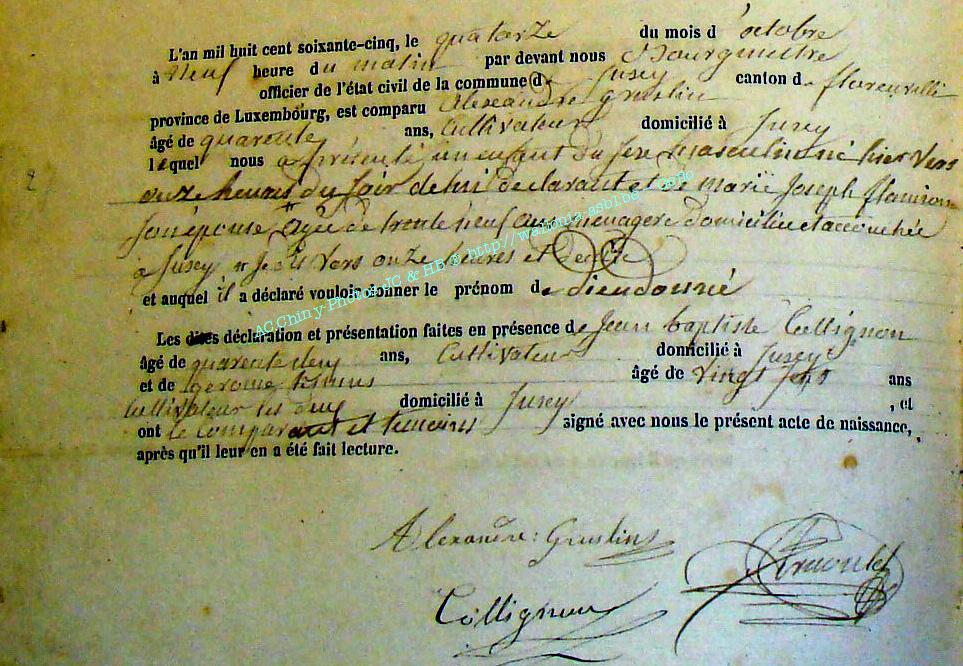 L'an mil huit cent soixante-cinq, le quatorze du mois d'octobre
à neuf heure du matin par devant nous Bourgmestre
officier de l'état civil de la commune de Jusey canton d florenville
province de Luxembourg, est comparu Alexandre gruslin
âgé de quarente ans, Cultivateur domicilié à Jusey
lequel nous a présenté un enfant du sexe masculin né hier vers
onze heures du soir de lui declarant et de marie Joseph
son épouse agée de trente neuf ans menagere domiciliée et accouchée
à Jusey vers onze heures et
et auquel il a déclaré vouloir donner le prénom de dieudonné
Les dites déclaration et présentation faites en présence de Jean baptiste Collignon
âgé de quarente ans, Cultivateur domicilié à Jusey
et de gerome âgé de vingt ans
Cultivateur les deux domicilié à Jusey , et
ont le comparant et temoins signé avec nous le présent acte de naissance,
après qu'il leur en a été fait lecture.
Alexandre: Gruslin
Collignon
AC Chiny - Photos JC & HB © http://wallonia.asbl.be